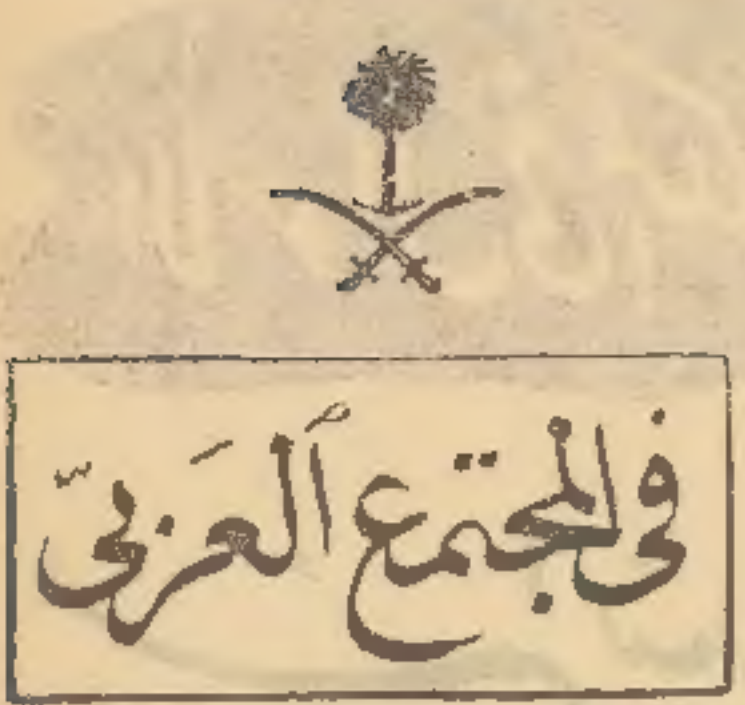 في المجتمع العربيّ